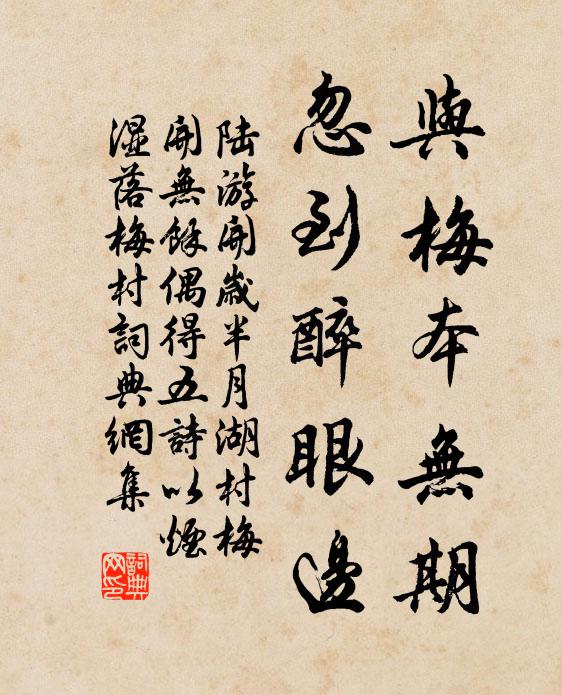 與梅本無期
忽到醉眼邊
陸游開歲半月湖村梅
開無餘偶得五詩以煙
濕落梅村詞典網集
詞典
网印